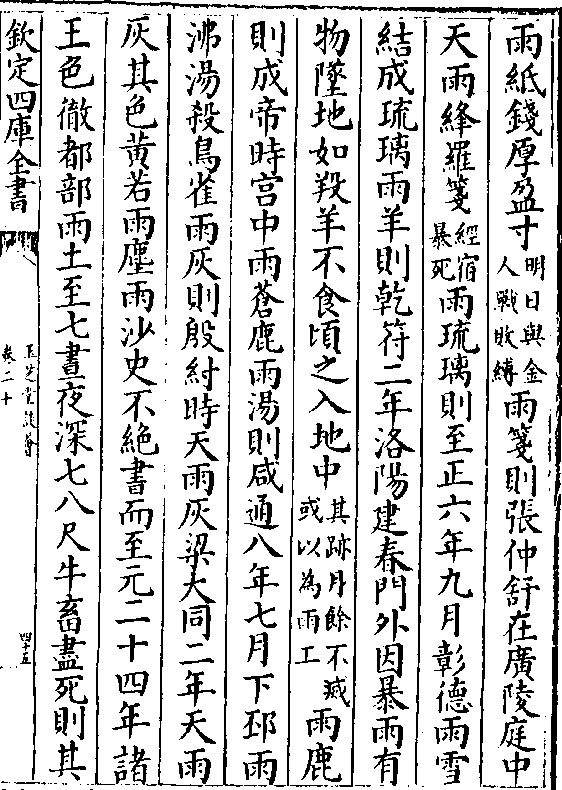 雨紙錢厚盈寸明日與金人戰敗縛雨箋則張仲舒在廣陵庭中
天雨絳羅箋經宿暴死雨琉璃則至正六年九月彰德雨雪
結成琉璃雨羊則乾符二年洛陽建春門外因暴雨有
物墜地如羖羊不食頃之入地中其跡月餘不滅或以為雨工雨鹿
則成帝時宫中雨蒼鹿雨湯則咸通八年七月下邳雨
沸湯殺鳥雀雨灰則殷紂時天雨灰梁大同二年天雨
灰其色黄若雨塵雨沙史不絶書而至元二十四年諸
王色徹都部雨土至七晝夜深七八尺牛畜盡死則其
欽定四庫全書
玉芝堂談薈
卷二十
四十五